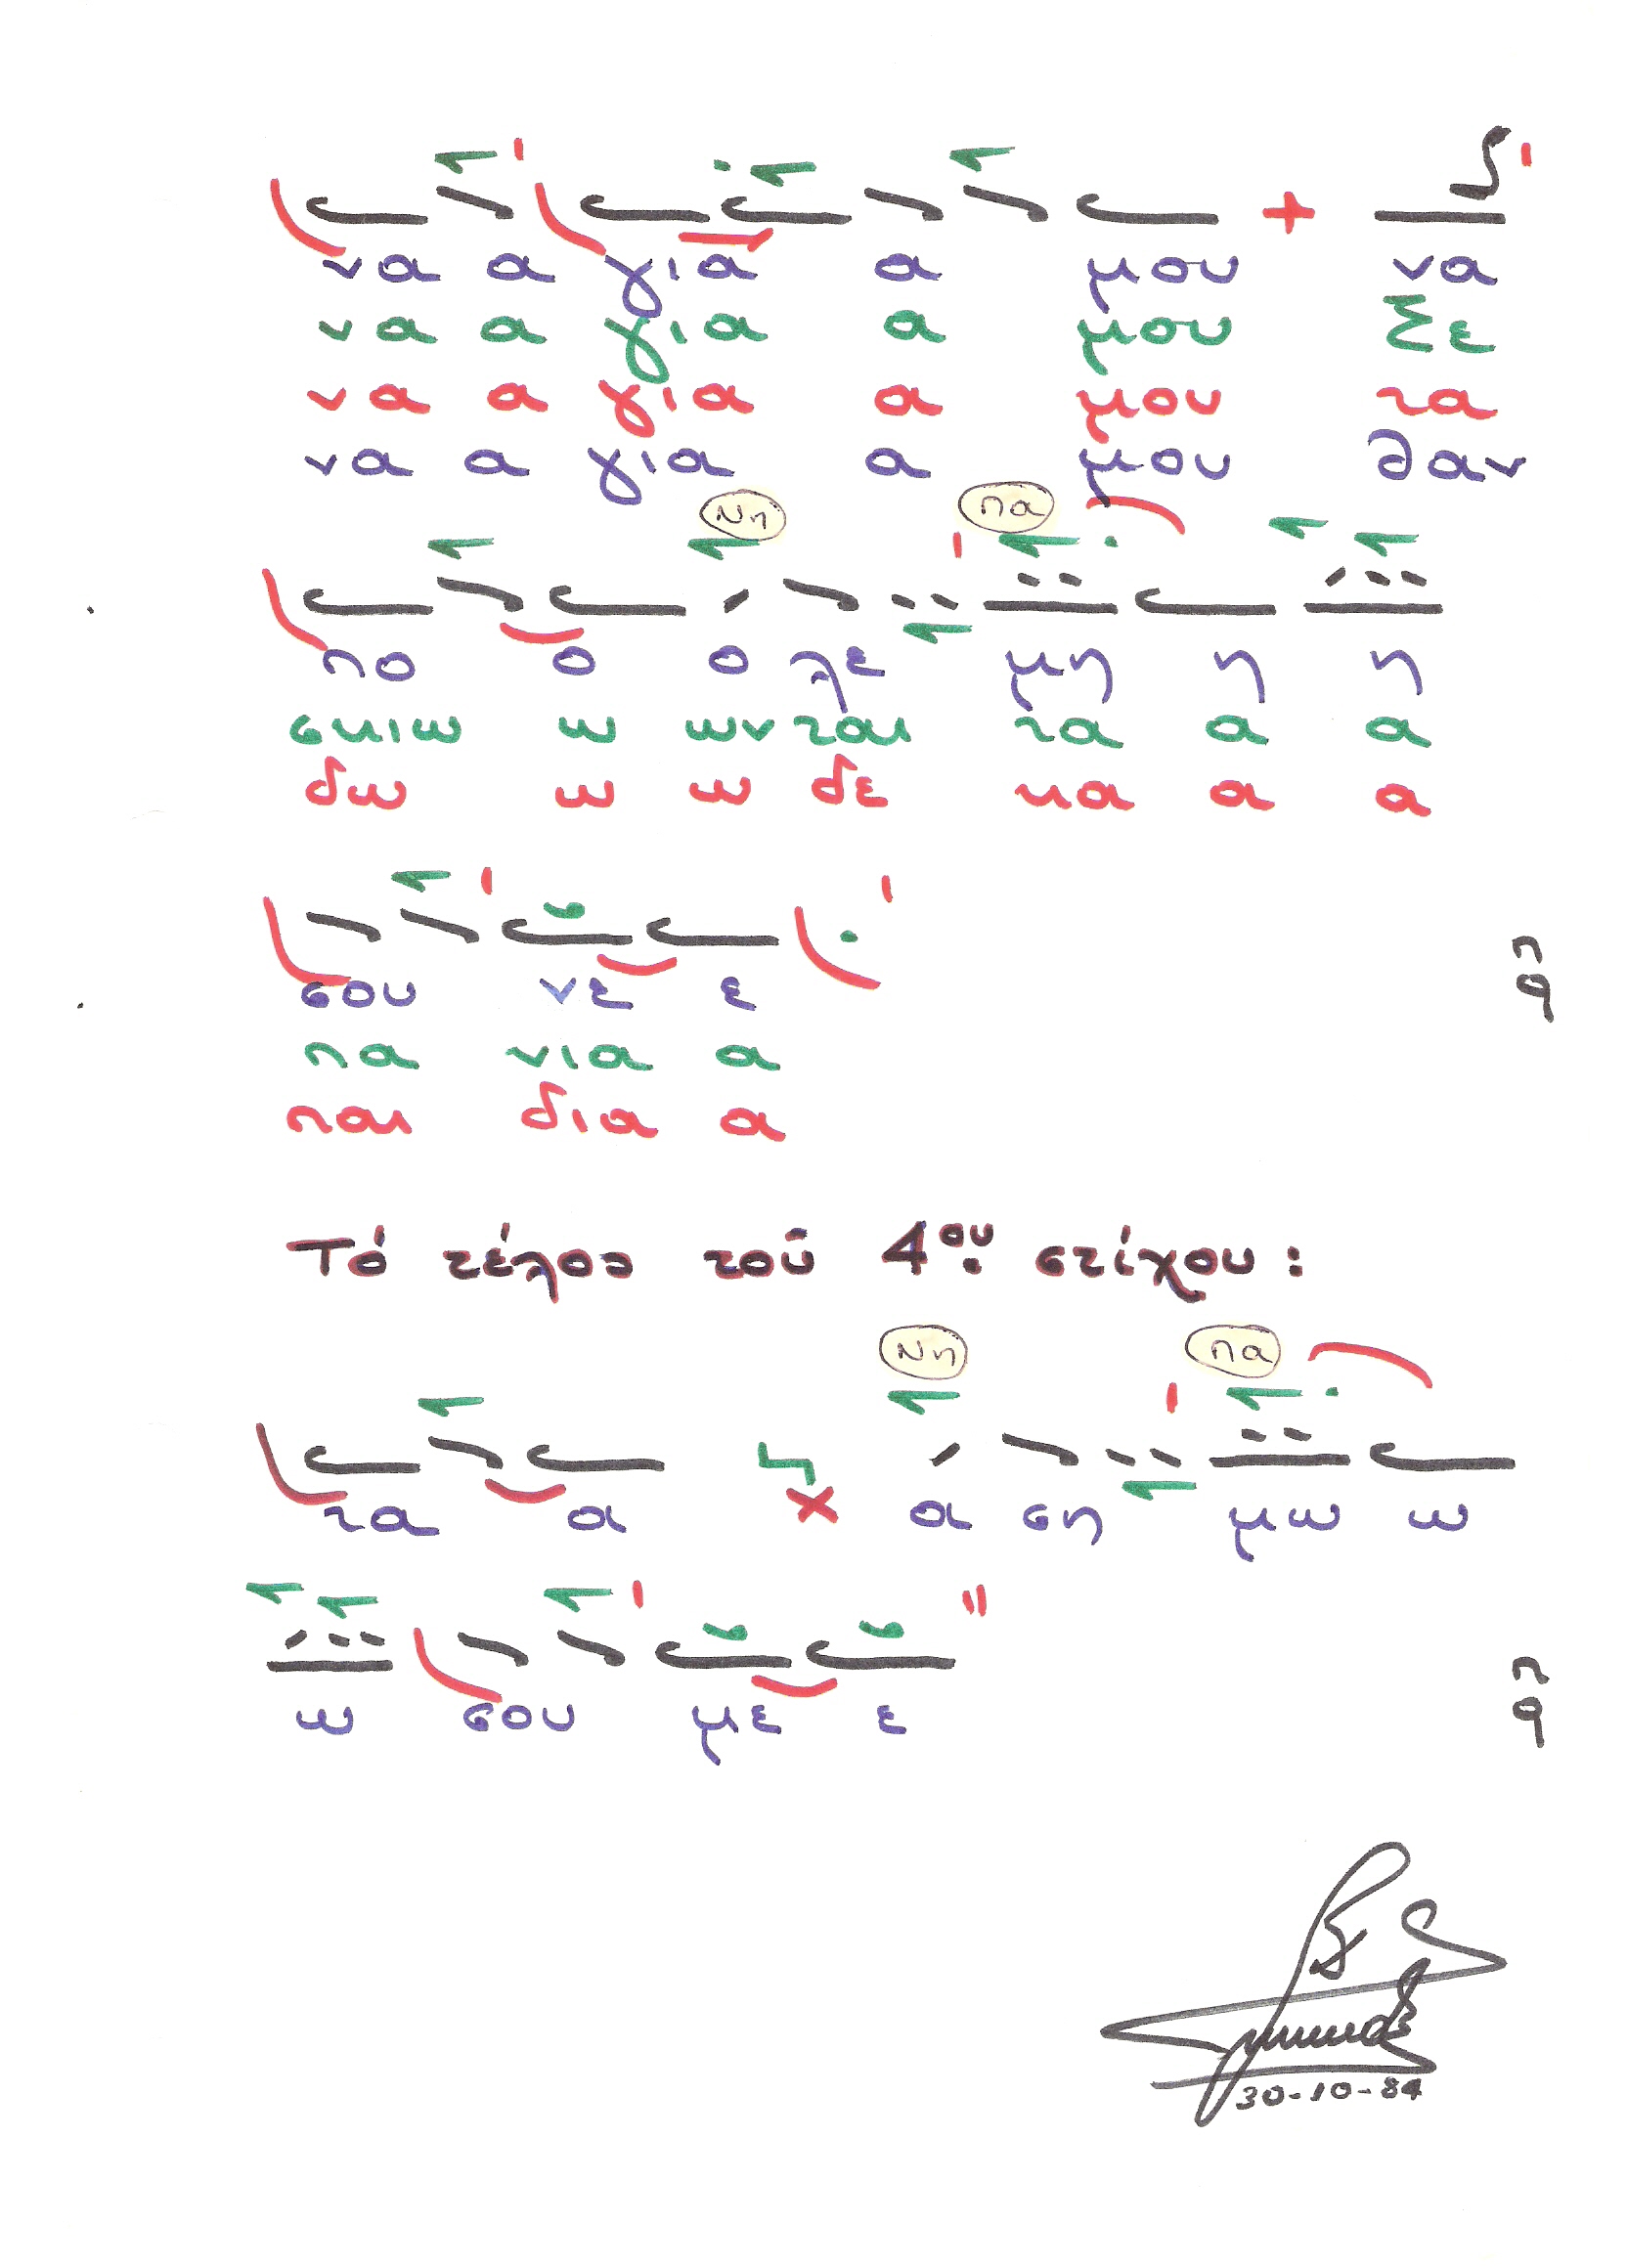 να α για α μου + να
να α για α μου Σε
να α για α μου τα
να α για α μου θαν
Νη πα
πο ο ο λε μη η η
σκιω ω ων ται τα α α
δω ω ω δε κα α α
σου νε ε
πα νια α
και δια α
π
q
Τό τέλος τοῦ 4ου στίχου:
Νη πα
τα α α ση μω ω
ω σου με ε
π
q
30-10-84